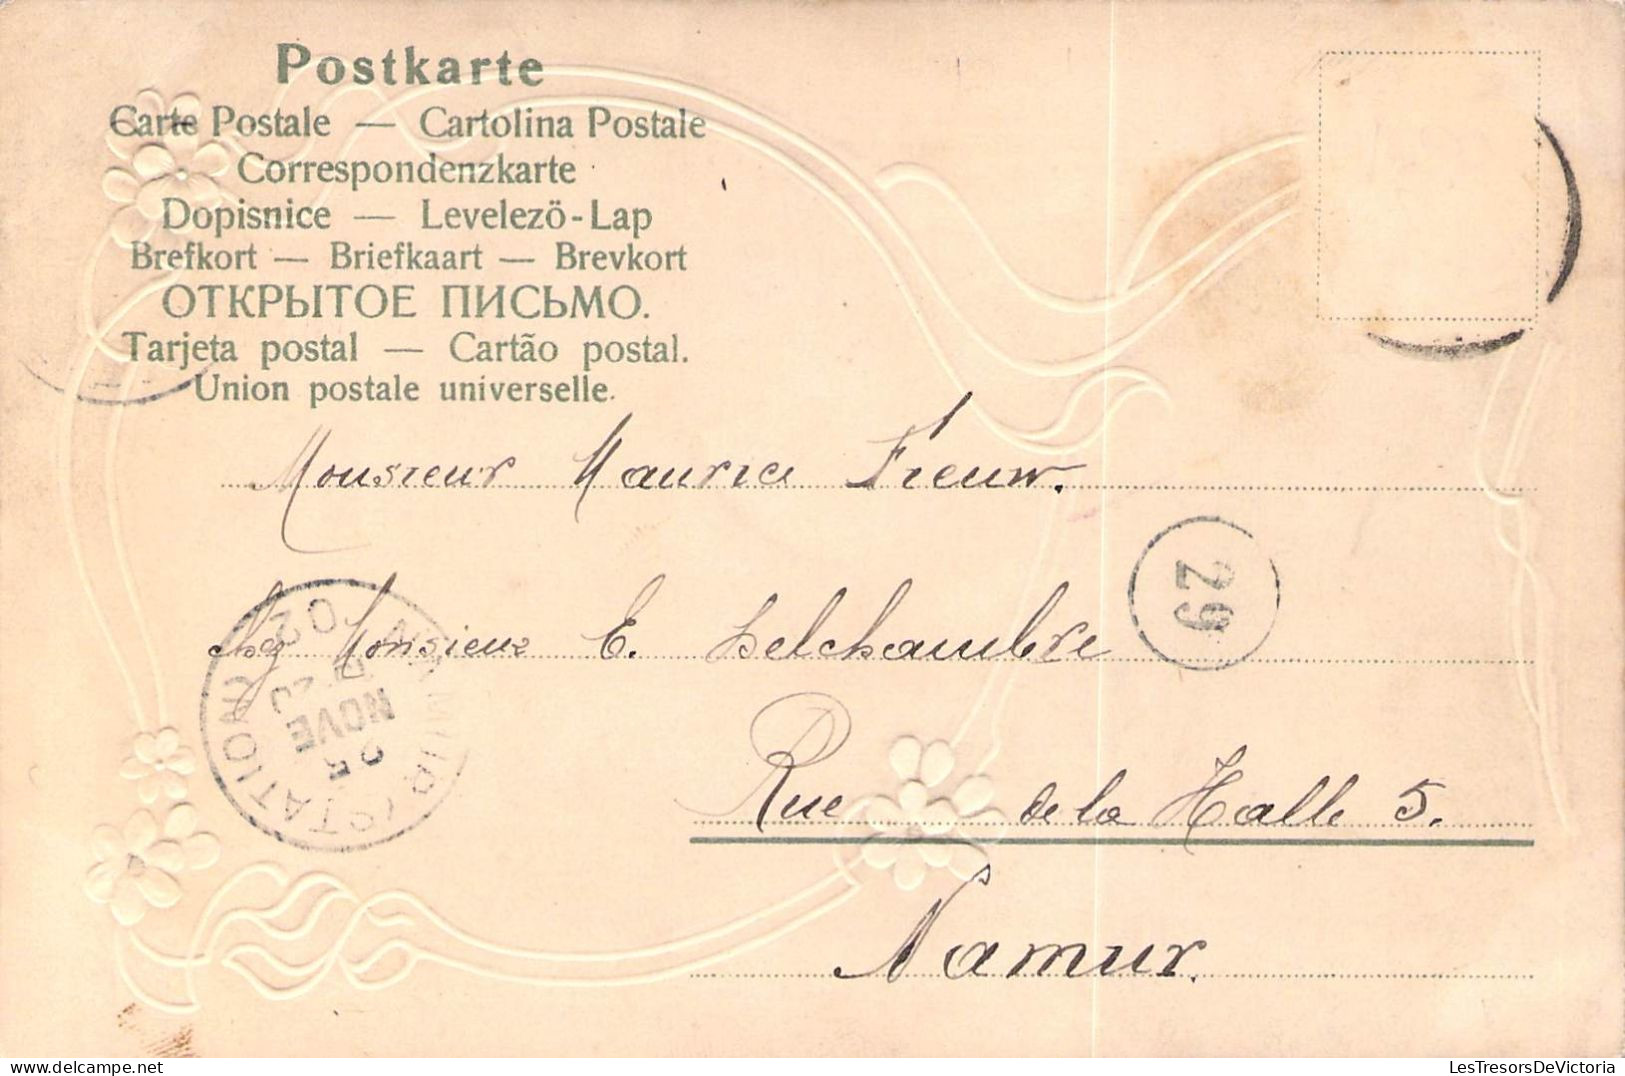 Postkarte
Carte Postale — Cartolina Postale
Correspondenzkarte
Dopisnice — Levelező-Lap
Brefkort — Briefkaart — Brevkort
ОТКРЫТОЕ ПИСЬМО.
Tarjeta postal — Cartão postal.
Union postale universelle.
Monsieur Maurice
chez Monsieur E. Delchambre
29
NAMUR (STATION)
25
NOVE
02
Rue de la Halle 5.
Namur.
LesTresorsDeVictoria